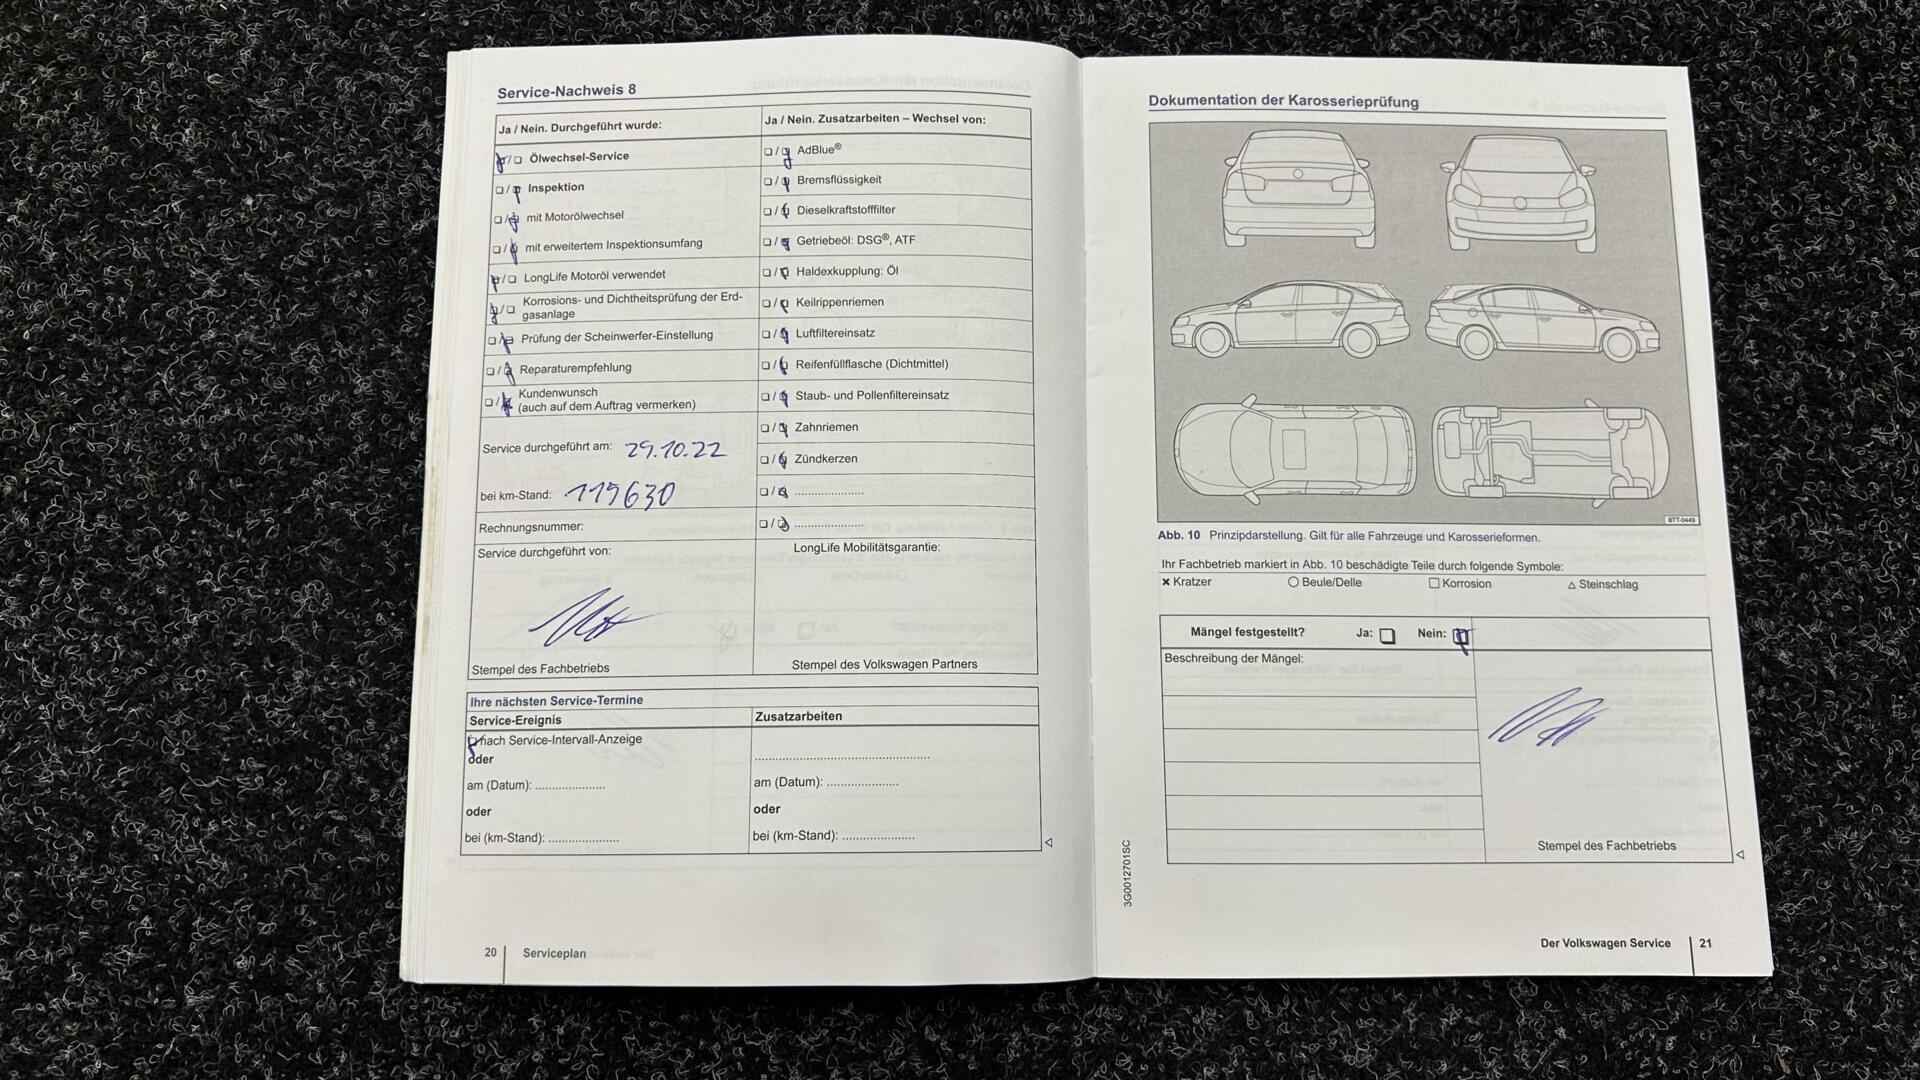 Service-Nachweis 8
Ja / Nein. Durchgeführt wurde:
Ölwechsel-Service
Inspektion
mit Motorölwechsel
mit erweitertem Inspektionsumfang
LongLife Motoröl verwendet
Korrosions- und Dichtheitsprüfung der Erd-
gasanlage
Prüfung der Scheinwerfer-Einstellung
Reparaturempfehlung
Kundenwunsch
(auch auf dem Auftrag vermerken)
Service durchgeführt am: 29.10.22
bei km-Stand: 119630
Rechnungsnummer:
Service durchgeführt von:
Stempel des Fachbetriebs
Ja / Nein. Zusatzarbeiten – Wechsel von:
AdBlue®
Bremsflüssigkeit
Dieselkraftstofffilter
Getriebeöl: DSG®, ATF
Haldexkupplung: Öl
Keilrippenriemen
Luftfiltereinsatz
Reifenfüllflasche (Dichtmittel)
Staub- und Pollenfiltereinsatz
Zahnriemen
Zündkerzen
LongLife Mobilitätsgarantie:
Stempel des Volkswagen Partners
Ihre nächsten Service-Termine
Service-Ereignis
nach Service-Intervall-Anzeige
oder
am (Datum): .....................
oder
bei (km-Stand): .....................
Zusatzarbeiten
am (Datum): .....................
oder
bei (km-Stand): .....................
20 Serviceplan
Dokumentation der Karosserieprüfung
BTT-0449
Abb. 10 Prinzipdarstellung. Gilt für alle Fahrzeuge und Karosserieformen.
Ihr Fachbetrieb markiert in Abb. 10 beschädigte Teile durch folgende Symbole:
× Kratzer ○ Beule/Delle □ Korrosion △ Steinschlag
Mängel festgestellt? Ja: Nein:
Beschreibung der Mängel:
Stempel des Fachbetriebs
3G0012701SC
Der Volkswagen Service 21